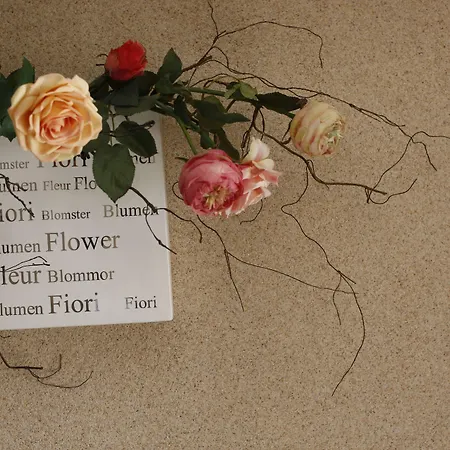 omster Fiori Blumen
lumen Fleur Flo
iori Blomster Blumen
lumen Flower
leur Blommor
lumen Fiori Fiori